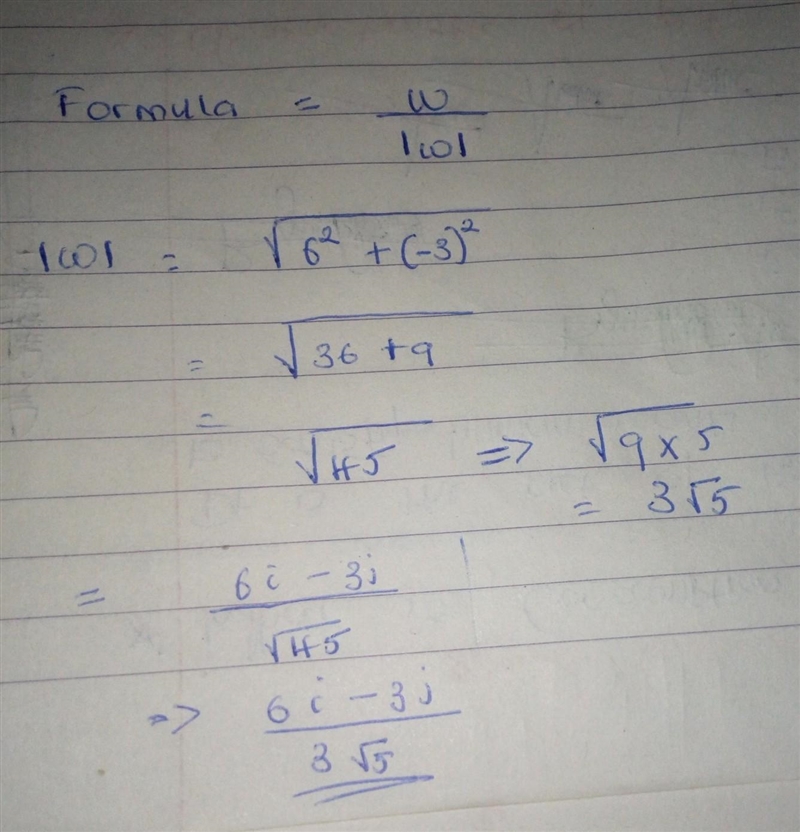 Formula = w/|w|
|w| = √6² + (-3)²
= √36 + 9
= √45 => √9 x 5
= 3√5
= 6i - 3j/√45
=> 6i - 3j/3√5